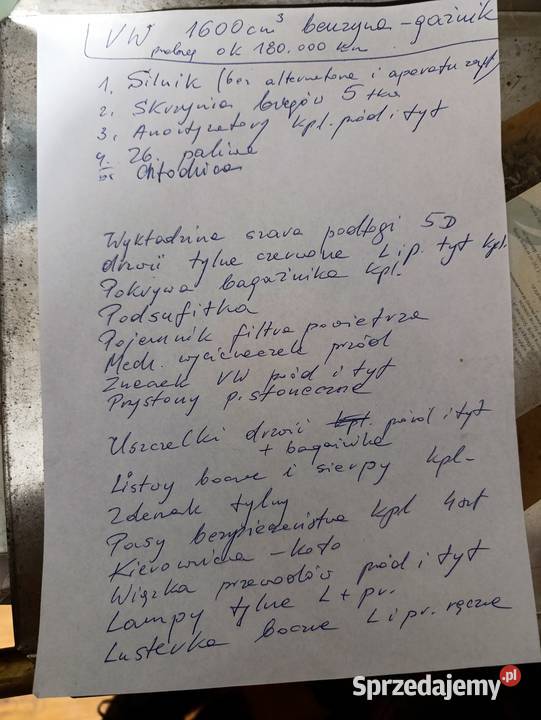 VW 1600cm³ benzyna - gaźnik
przebieg ok 180.000 km
1. Silnik (bez alternatora i aparatu zapł
2. Skrzynia biegów 5tka
3. Amortyzatory kpl. przód i tył
4. Zb. paliwa
5. Chłodnica
Wykładzina szara podłogi 5D
drzwi tylne czerwone L i p. tył kpl.
Pokrywa bagażnika kpl.
Podsufitka
Pojemnik filtra powietrza
Mech. wycieraczek przód
Znaczek VW przód i tył
Przysłony p. słoneczne
Uszczelki drzwi kpl. przód i tył
+ bagażnika
Listwy boczne i sierpy kpl-
Zderzak tylny
Pasy bezpieczeństwa kpl 4szt
Kierownica - koło
Wiązka przewodów przód i tył
Lampy tylne L + pr.
Lusterka boczne L i pr. ręczne
Sprzedajemy.pl